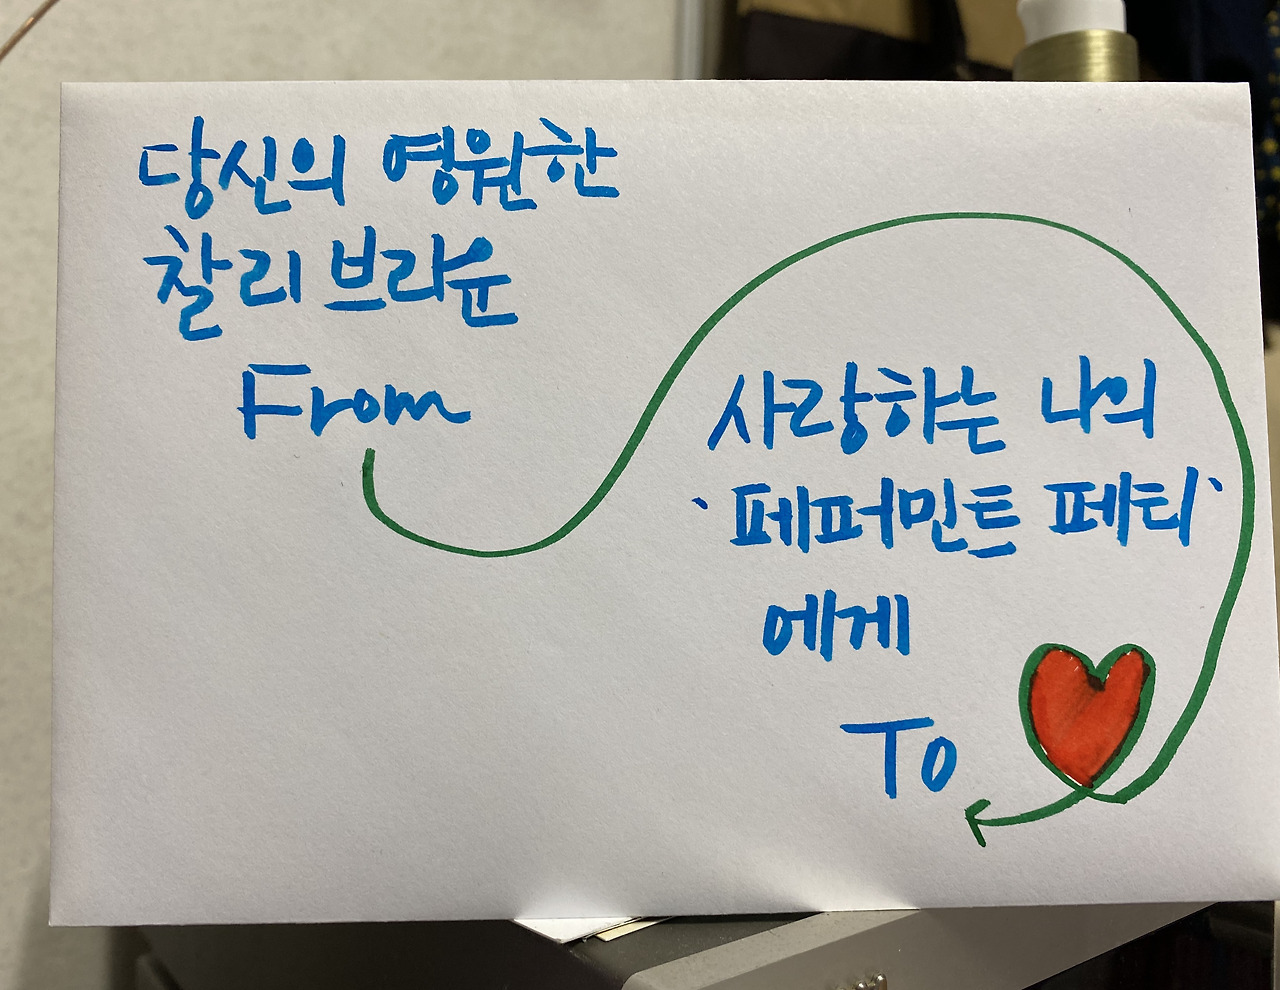 당신의 영원한
찰리 브라운
From
사랑하는 나의
'페퍼민트 페티'
에게
To